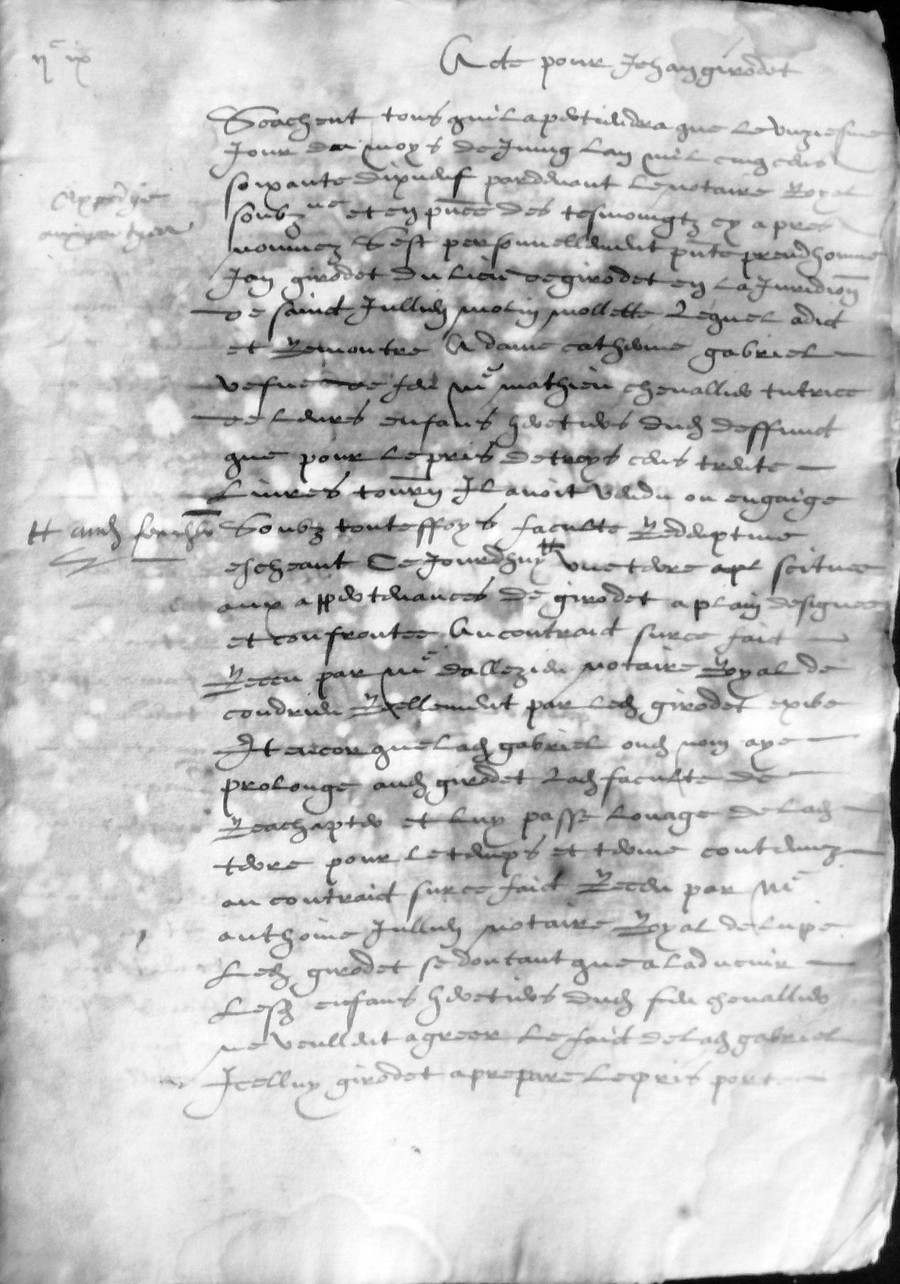 Acte pour Jehan girodet
Scachent tous quil apertiendra que le unziesme
Jour du moys de Juing lan mil cinq cens
soixante dixneuf pardevant le notaire Royal
soubz.ne et en pnce des tesmoingtz cy apres
nommez Sest personnellement pnte preudhomme
Jan girodet du lieu de girodet en la Juridion
de sainct Jullien molin mollette Lequel a dict
et Remontre A dame catherine gabriel
vefue de feu me mathieu chevallier tutrice
de leurs enfans heretiers dud deffunct
que pour le pris de troys cens trente
Livres tourn Il avoit vendu ou engaige
Soubz touteffoys faculte Redemptive
escheant Ce Jourdhuy # une terre a pl scituee
# aud
aux appertenances de girodet a plain designee
et confrontee Au contraict sur ce faict
Receu par me dallezieu notaire Royal de
condrieu Reellement par led girodet exibe
Et encor que lad gabriel oud nom aye
prolonge aud girodet lad faculte de
Reachapter et luy passe louage de lad
terre pour le temps et terme contenuz
au contraict sur ce faict Receu par me
anthoine Jullien notaire Royal de lupe
Led girodet se doutant que a ladvenir
Lesd enfans heretiers dud feu chevallier
ne veullent agreer le faict de lad gabriel
Icelluy girodet a prepare le pris porte